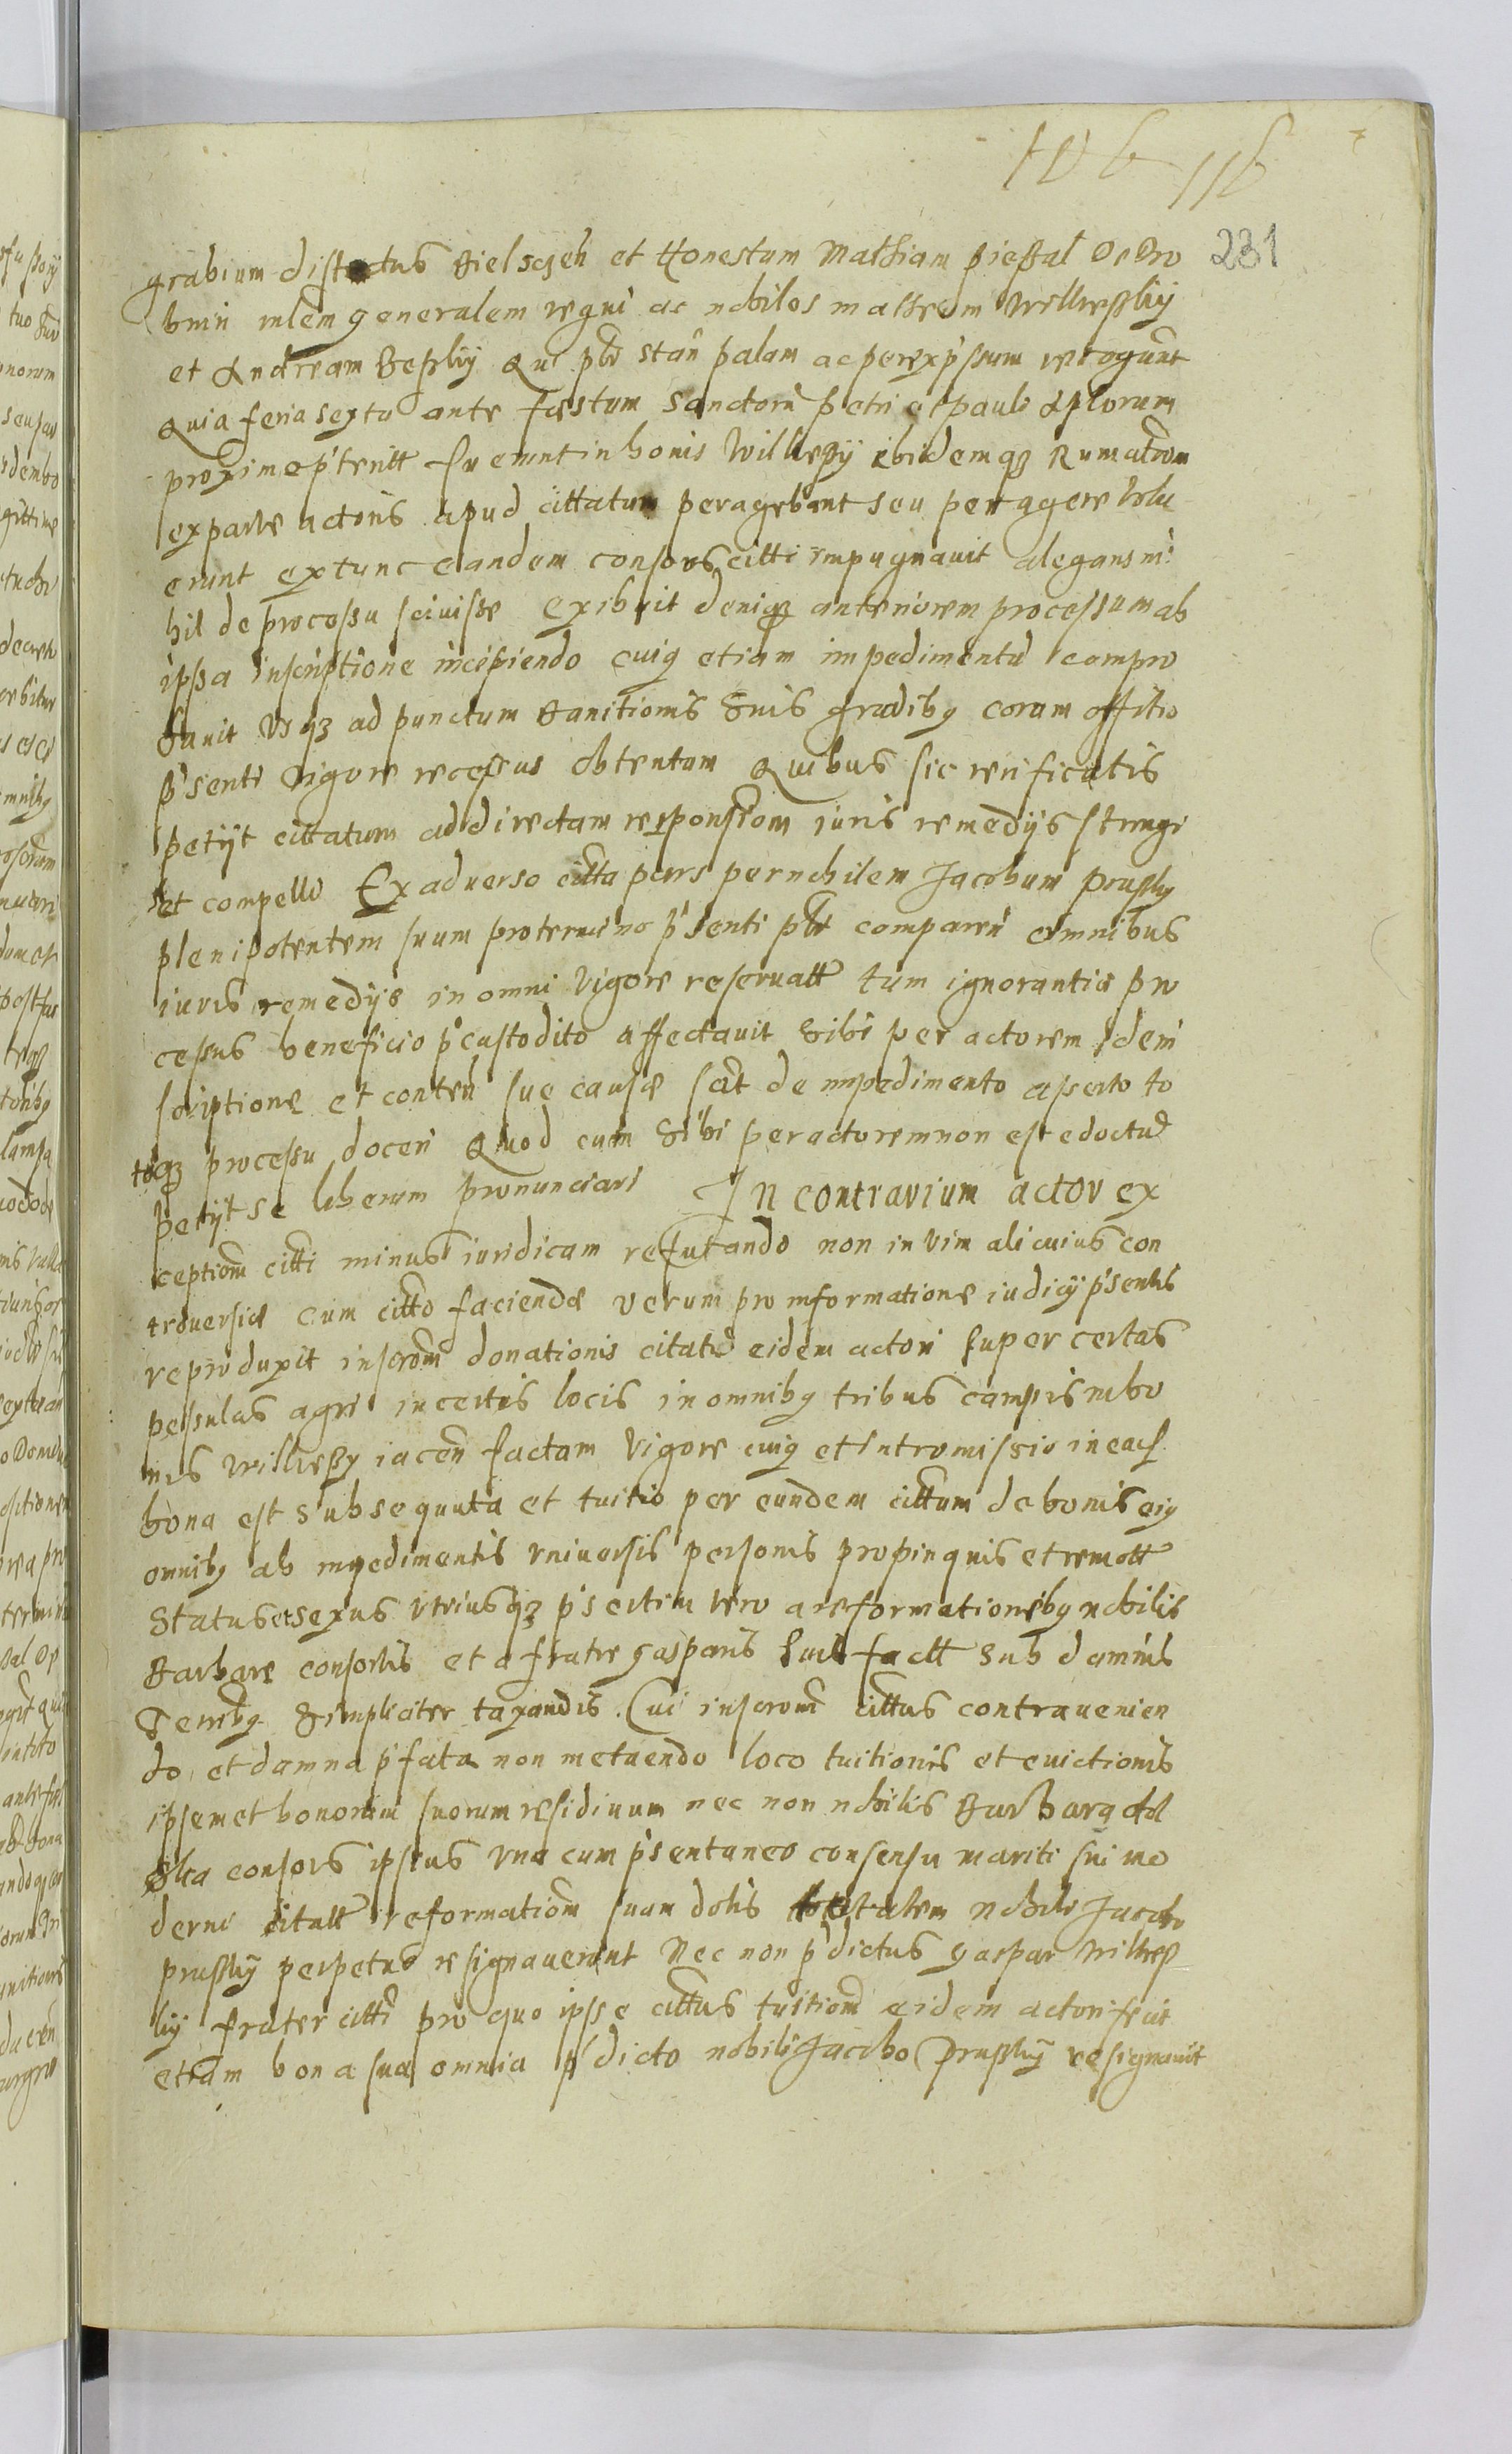 116
231
grabium distctus Bielscen et Honestum Mathiam pieskal De Bro
bnin mlem generalem regni ac nobiles matheum Willkessky
et Andream Beplky Qui pbr stan palam ac perexpssum recogunt
Quia feria sexta ante festum Sanctoru petri et pauli Aplorum
proxime pteritt fuerunt in bonis Willkessy ibidemqz Rumatiom
exparte actoris apud cittatum peragebant seu peragere volu
erunt extunc eandem consors citti impugnauit alegans ni:
hil de processu sciuisse Exibuit deniqz anteriorem processum ab
ipsa inscriptione incipiendo cuig etiam impedimentu compro
bauit Usqz ad punctum banitionis Suis gradibg coram offitio
psenti Vigore recessus obtentam Quibus sic verificatis
petiit cittatum addirectam responsiom iuris remediis stringi
et compelli Ex aduerso citta pars per nobilem Jacobum prussky
plenipotentem suum pro termino psenti pbr comparen omnibus
iuris remediis in omni Vigore reseruatt tum ignorantia pro
cessus beneficio pcustodito affectauit Sibi per actorem de in
scriptione et conten sue causæ scit de impedimento aserto to
toqz processu doceri Quod cum Sibi per actorem non est edoctu
petiit se liberum pronunciari In contrarium actor ex
ceptiom citti minus iuridicam refutando non in vim alicuius con
trouersiæ cum citto faciendæ verum pro informatione iudicij psentis
reproduxit inscrom donationis citatu eidem actori super certas
pessulas agri in certis locis in omnibg tribus campis in bo
nis Willkessy iacen factam Vigore cuig et Intromissio in eas
bona est subsequuta et tuitio per eundem cittum de bonis eig
omnibg ab impedimentis vniuersis personis propinquis et remott
Status et sexus vtriusqz psertim vero a reformationibg nobilis
Barbare consortis et a fratre gasparis suis factt sub damnis
Terribg Simpliciter taxandis. Cui inscrom cittus contrauenien
do et damna pfata non metuendo loco tuitionis et euictionis
ipsemet bonorum suorum residiuum nec non nobilis Barbara
consors ipsius vna cum psentaneo consensu mariti sui mo
derni citatt reformatiom suam dotis dotalem nobili Jacobo
prussky perpetuo resignauerunt Nec non pdictus gaspar Willkes
ky frater citti pro quo ipse cittus tuitiom eidem actori fecit
etiam bona sua omnia pdicto nobili Jacobo Prussky resignauit